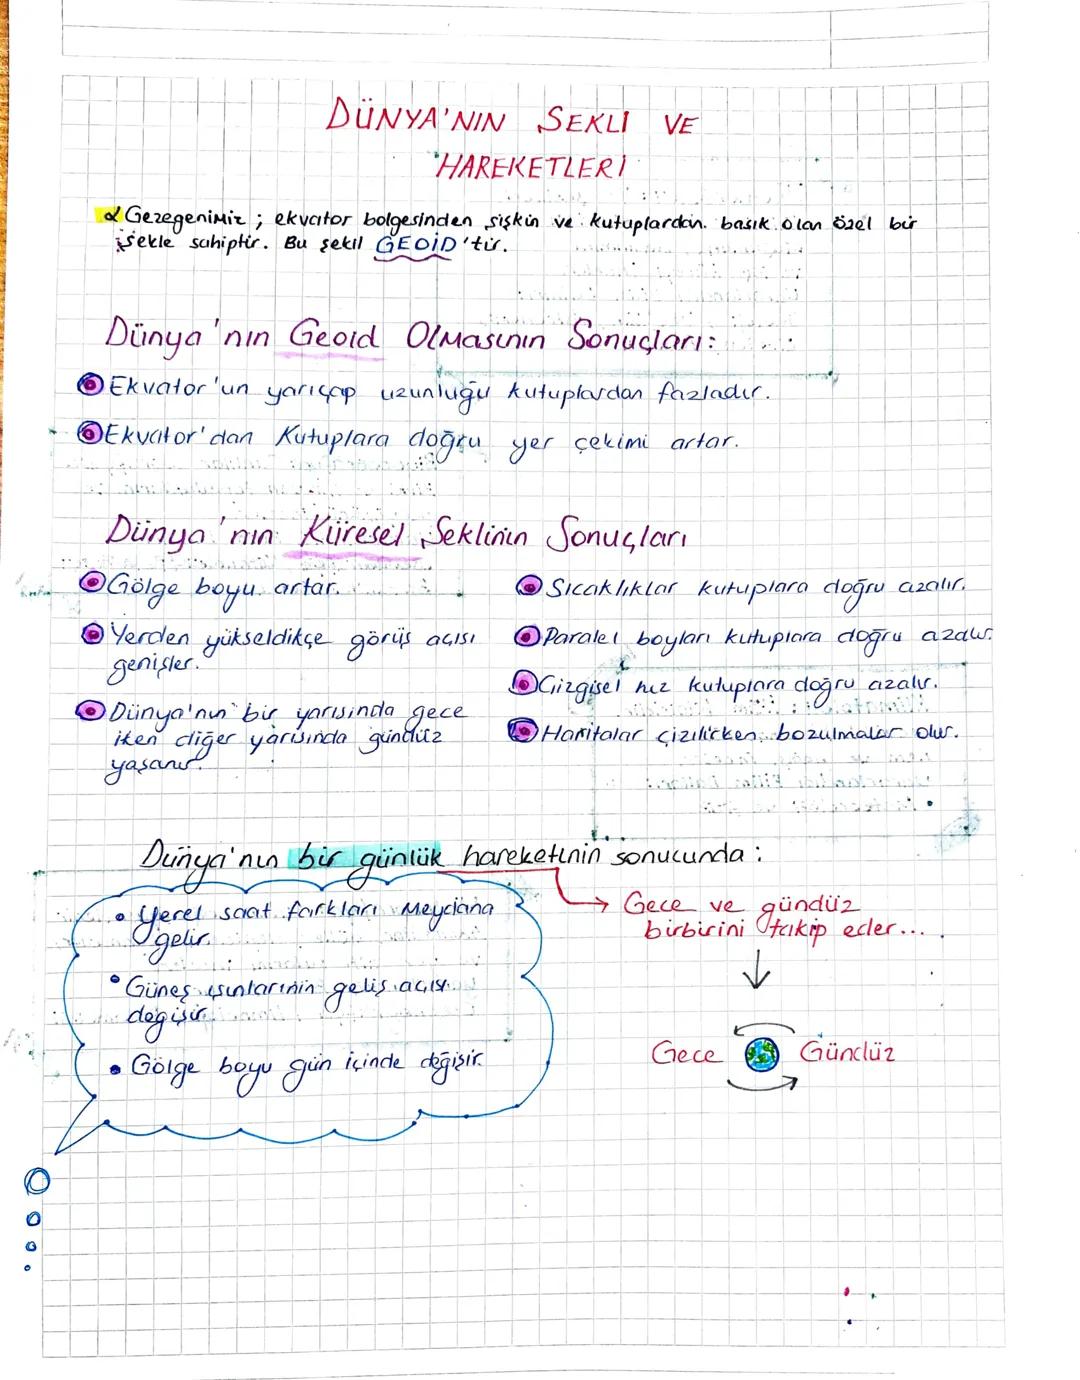 DÜNYA'NIN ŞEKLİ VE
HAREKETLERİ
Gezegenimiz ; ekvator bölgesinden şişkin ve kutuplardan basık olan özel bir
şekle sahiptir. Bu şekil GEOİD'tir.
Dünya'nın Geoid Olmasının Sonuçları:
Ekvator'un yarıçap uzunluğu kutuplardan fazladır.
Ekvator'dan Kutuplara doğru yer çekimi artar.
Dünya'nın Küresel Şeklinin Sonuçları
Gölge boyu artar.
Yerden yükseldikçe görüş açısı
genişler.
Dünya'nın bir yarısında gece
iken diğer yarısında gündüz
yaşanır.
Sıcaklıklar kutuplara doğru azalır.
Paralel boyları kutuplara doğru azalır.
Çizgisel hız kutuplara doğru azalır.
Haritalar çizilirken bozulmalar olur.
Dünya'nın bir günlük hareketinin sonucunda :
• Yerel saat farkları Meydana
gelir.
• Güneş ışınlarının geliş açısı
değişir.
• Gölge boyu gün içinde değişir.
Gece ve gündüz
birbirini takip eder...
Gece Gündüz